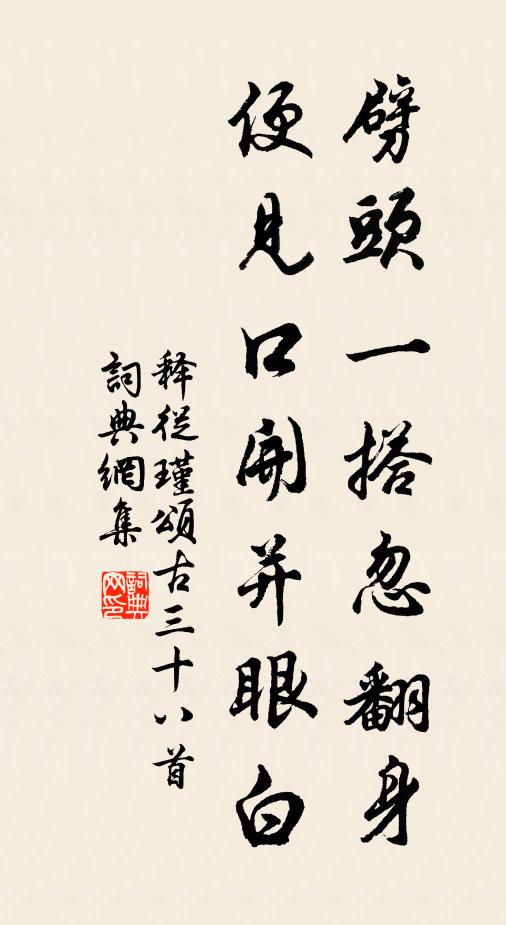 劈頭一搭忽翻身
便見口開并眼白
释從瑾頌古三十八首
詞典網集
詞典网印